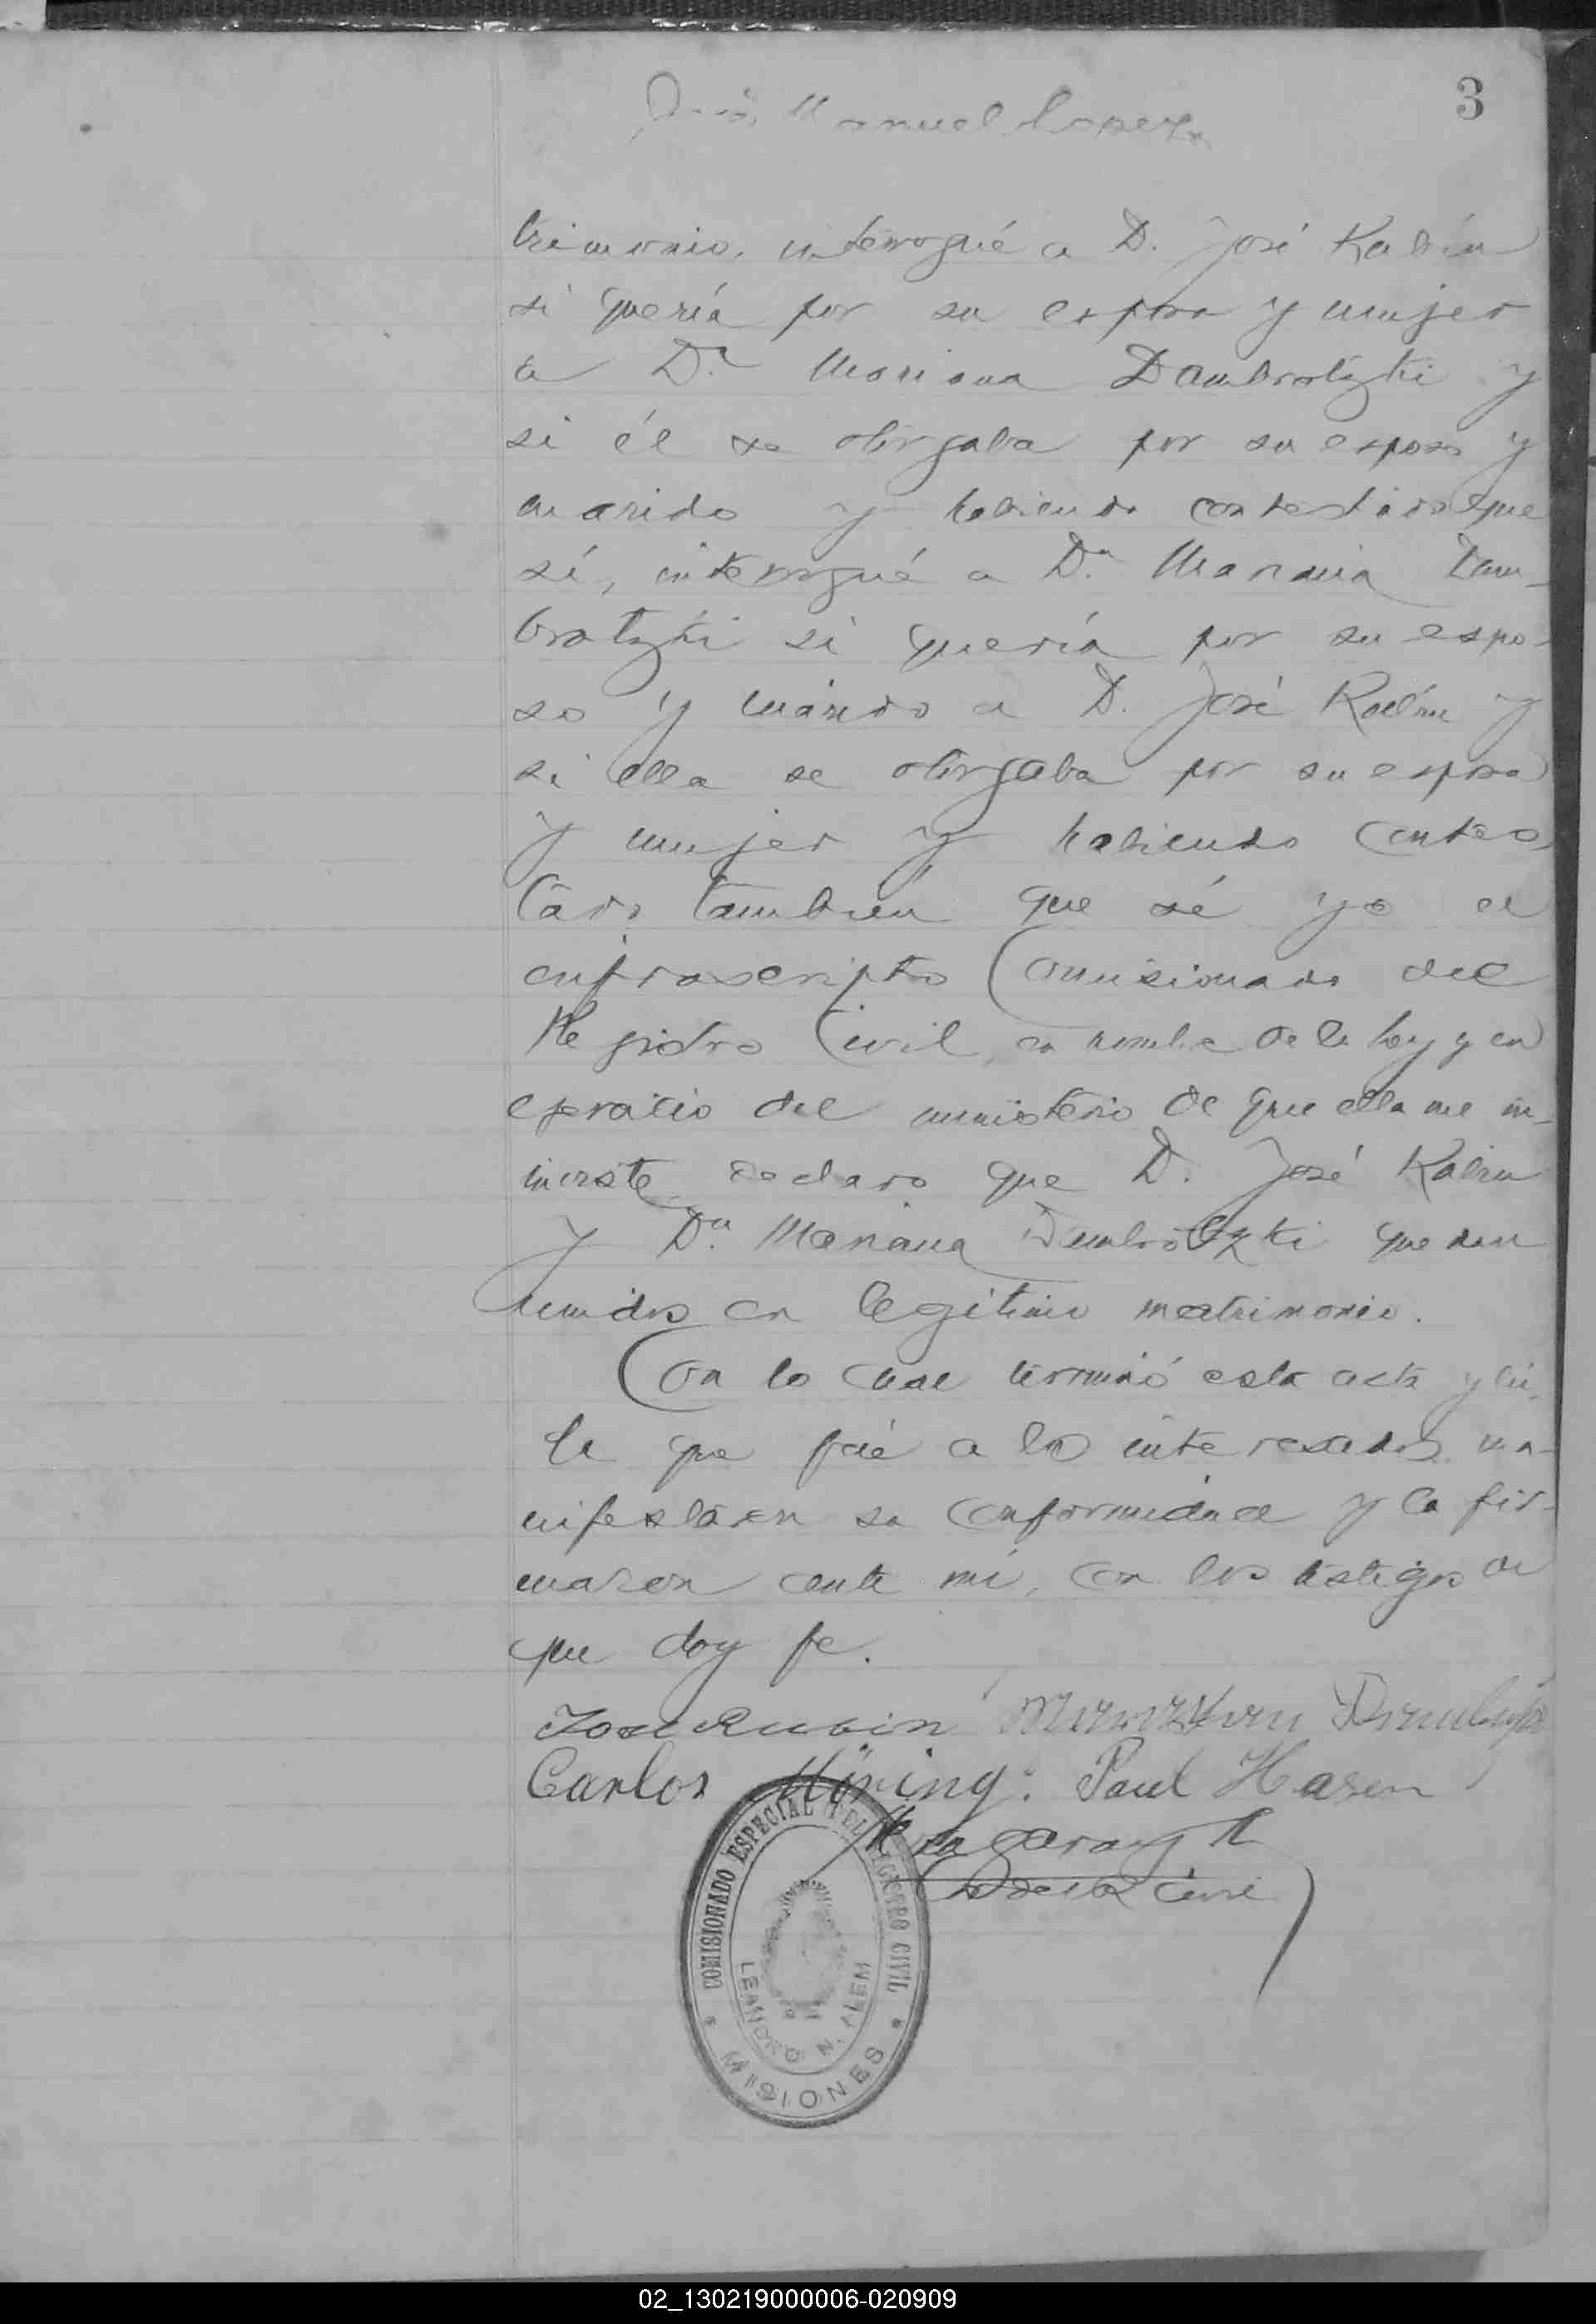 3
Manuel Lopez
trimonio, interrogué a D. José Rabín
si quería por su esposa y mujer
a Dª Mariana Dambrotzki y
si él se otorgaba por su esposo y
marido y habiendo contestado que
sí, interrogué a Dª Mariana Dam-
brotzki si quería por su espo-
so y marido a D. José Rabín y
si ella se otorgaba por su esposa
y mujer y habiendo contes
tado también que sí yo el
infrascripto Comisionado del
Registro Civil, en nombre de la Ley y en
ejercicio del ministerio de que ella me in-
inviste declaro que D. José Rabin
y Dª Mariana Dambrotzki quedan
unidos en legítimo matrimonio.
Con lo cual terminó esta acta y leí-
da que fué a los interesados ma-
nifestaron su conformidad y la fir-
maron ante mí, con los testigos de
que doy fe.
José Rubin
Carlos Möning. Paul Hasen
COMISIONADO ESPECIAL DEL REGISTRO CIVIL
LEANDRO N. ALEM
* MISIONES *
02_130219000006-020909